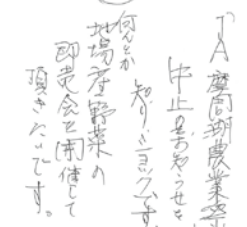 JA摩周湖農業祭
中止のお知らせを
知り、ショックです
何んとか
地場産野菜の
即売会を開催して
頂きたいです。